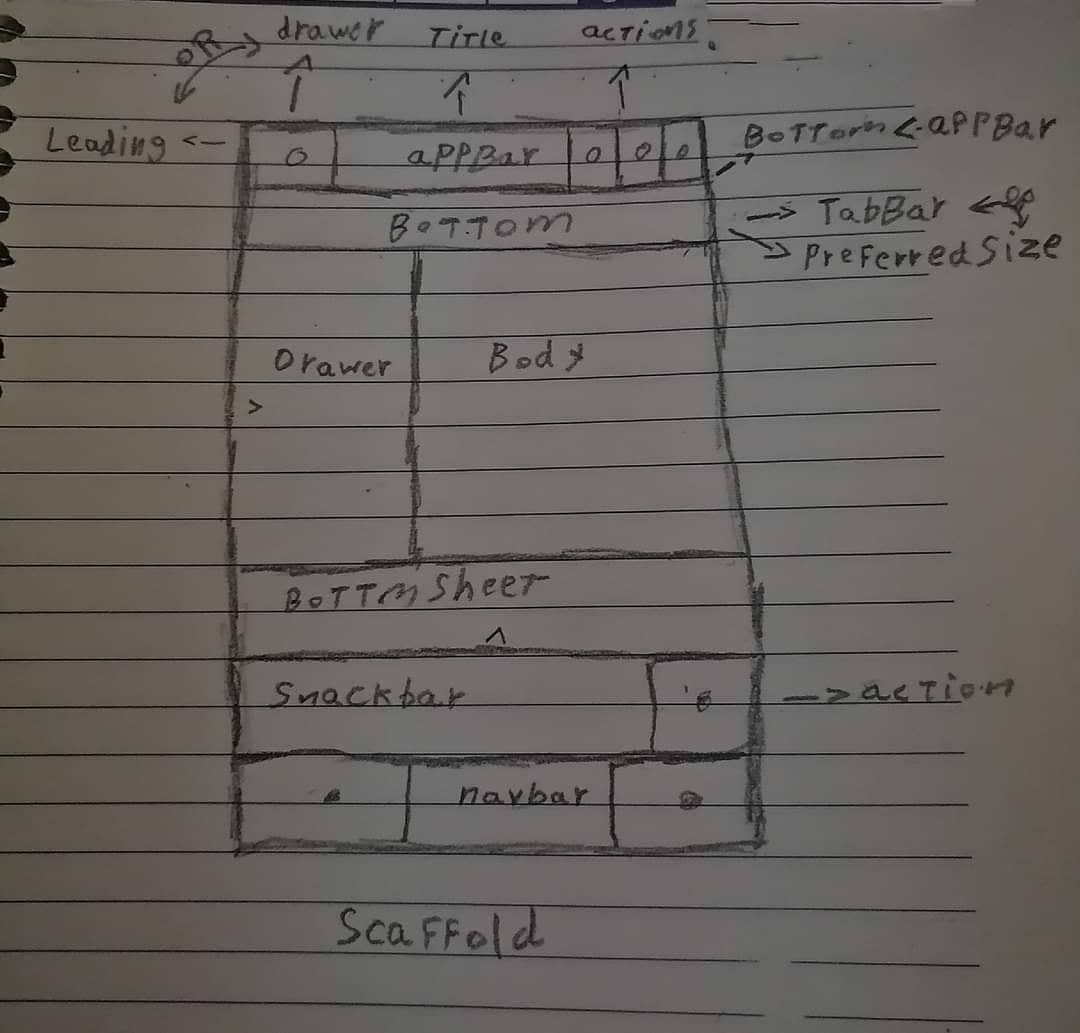 OR drawer Title actions.
Leading aPPBar BoTTom aPPBar
BoTTom TabBar OR
PreferredSize
Drawer Body
BoTTmSheet
Snackbar action
navbar
Scaffold